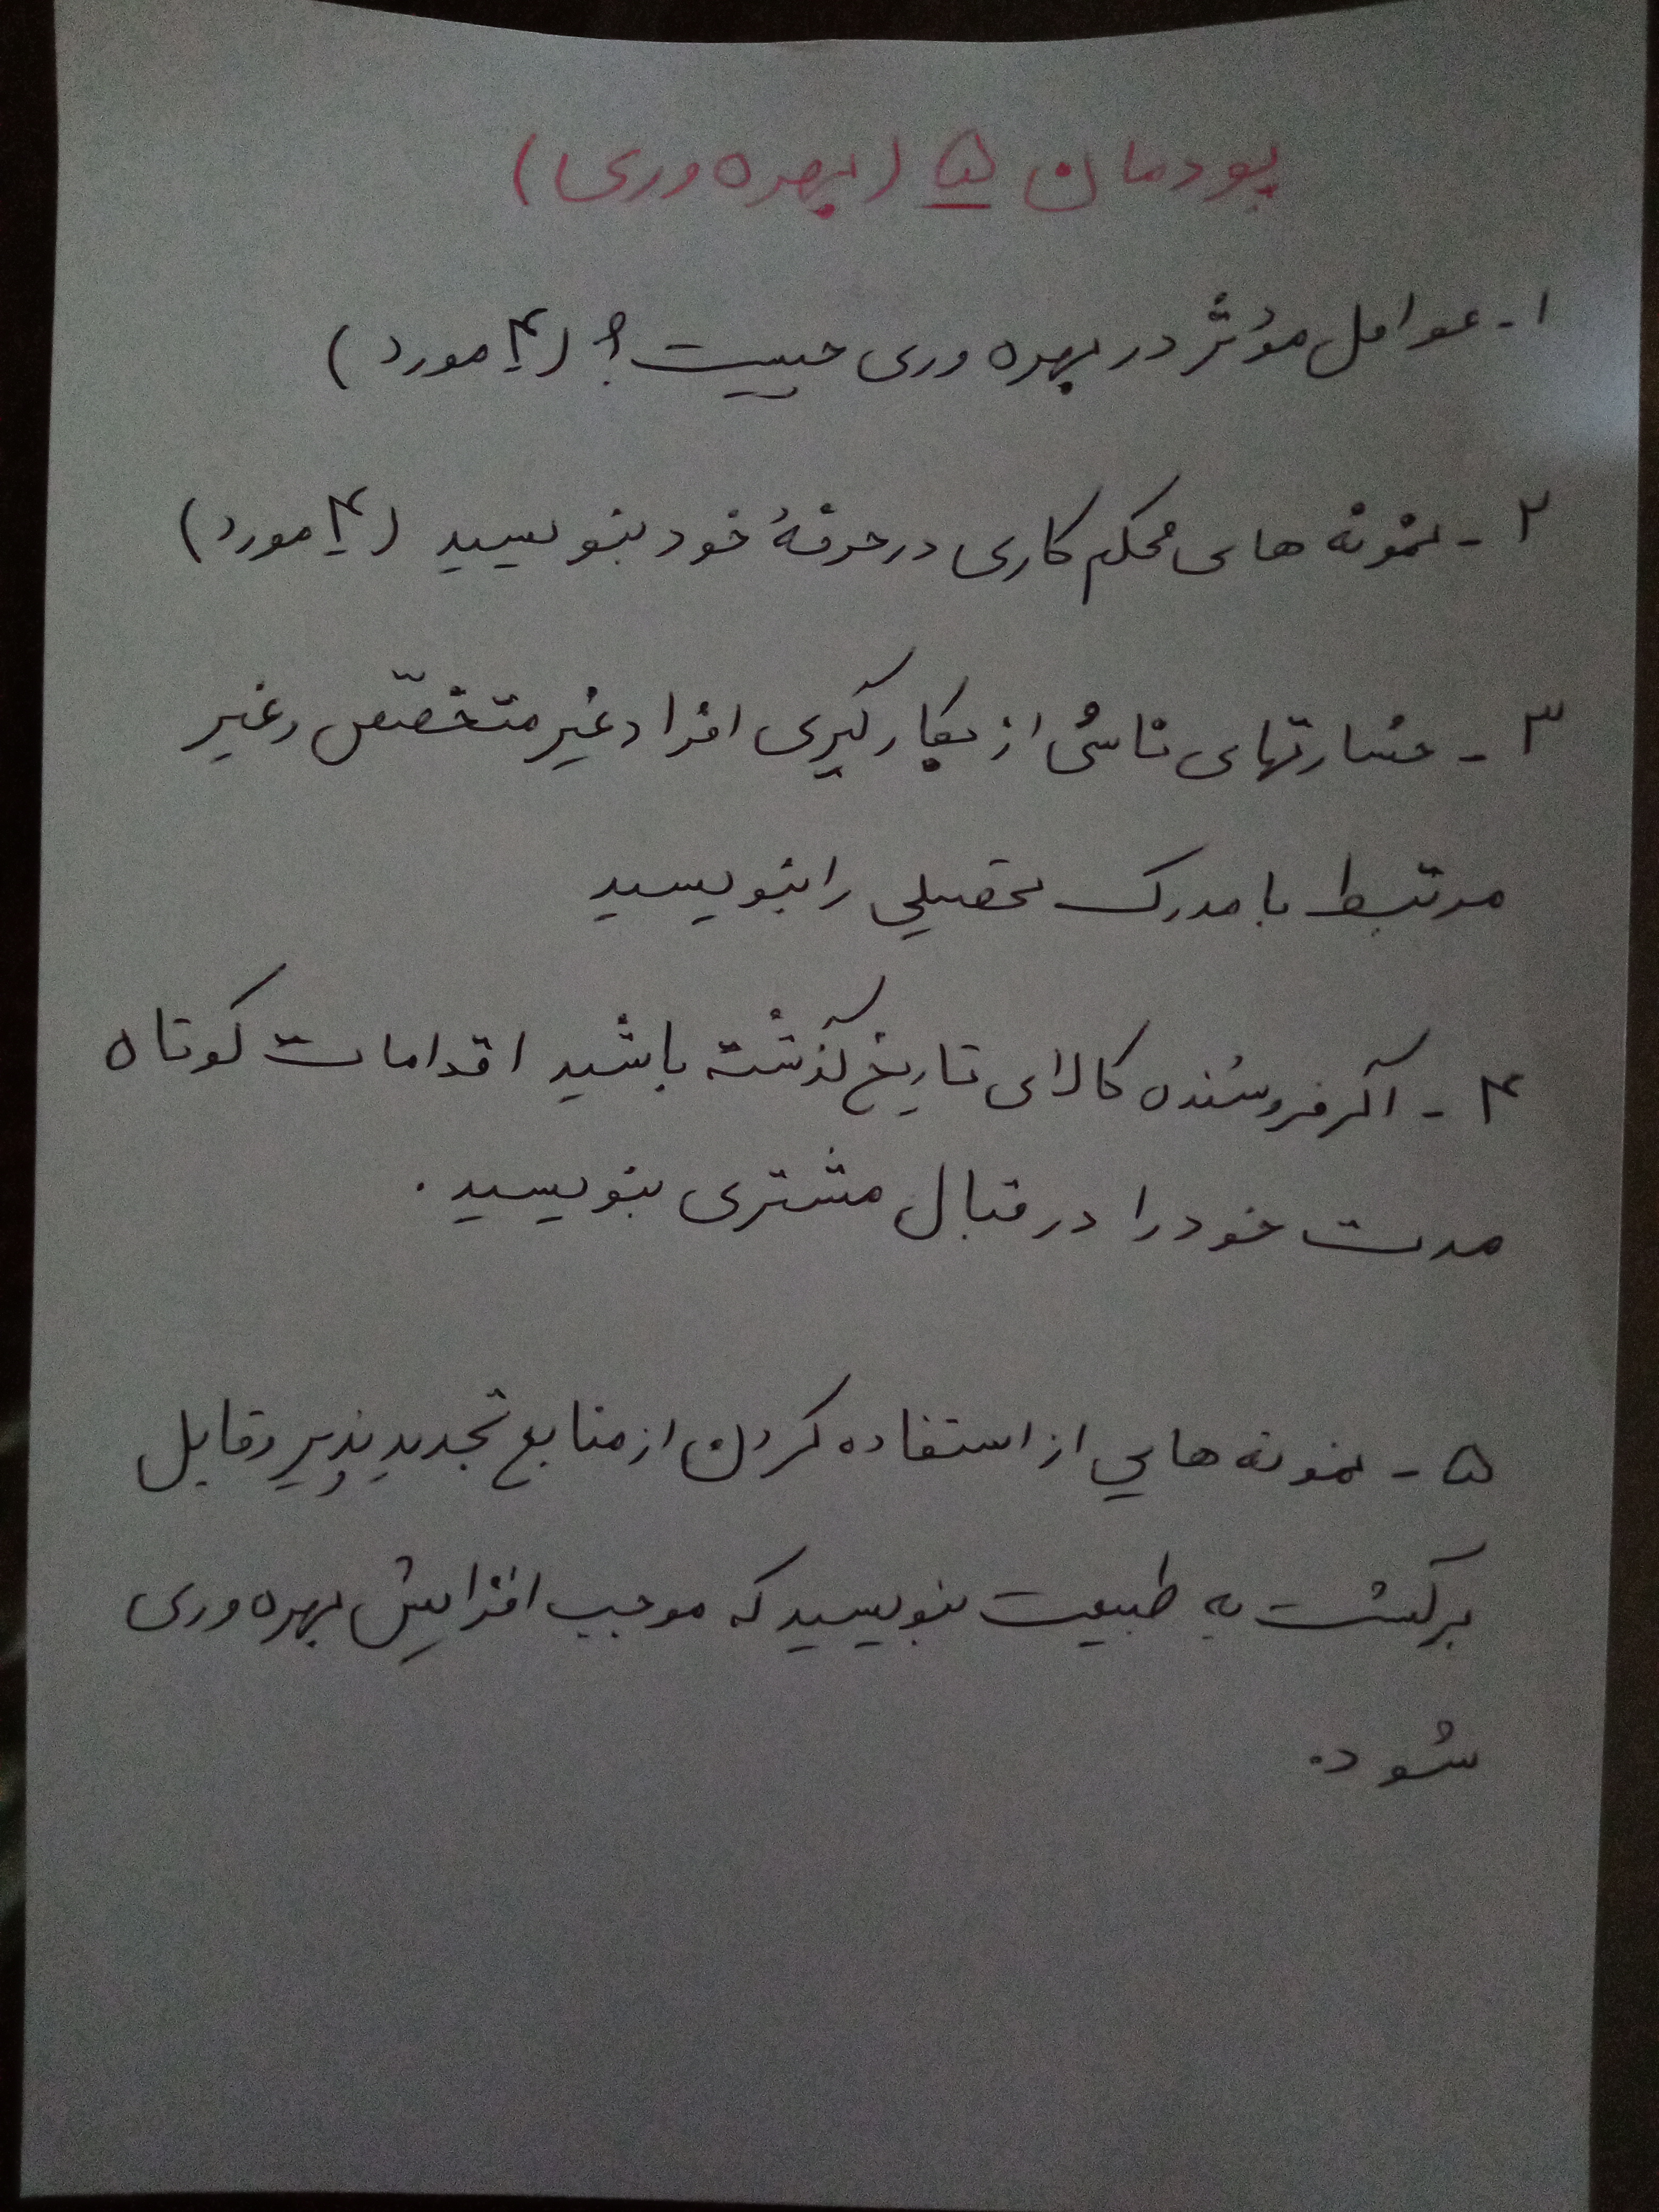 پودمان ۵ (بهره وری)
۱- عوامل مؤثر در بهره وری چیست؟ (۴ مورد)
۲- نمونه های محکم کاری در حرفهٔ خود بنویسید (۴ مورد)
۳- خسارتهای ناشی از بکارگیری افراد غیر متخصّص و غیر
مرتبط با مدرک تحصیلی را بنویسید
۴- اگر فروشنده کالای تاریخ گذشته باشید اقدامات کوتاه
مدت خود را در قبال مشتری بنویسید.
۵- نمونه هایی از استفاده کردن از منابع تجدید پذیر و قابل
برگشت به طبیعت بنویسید که موجب افزایش بهره وری
شود.